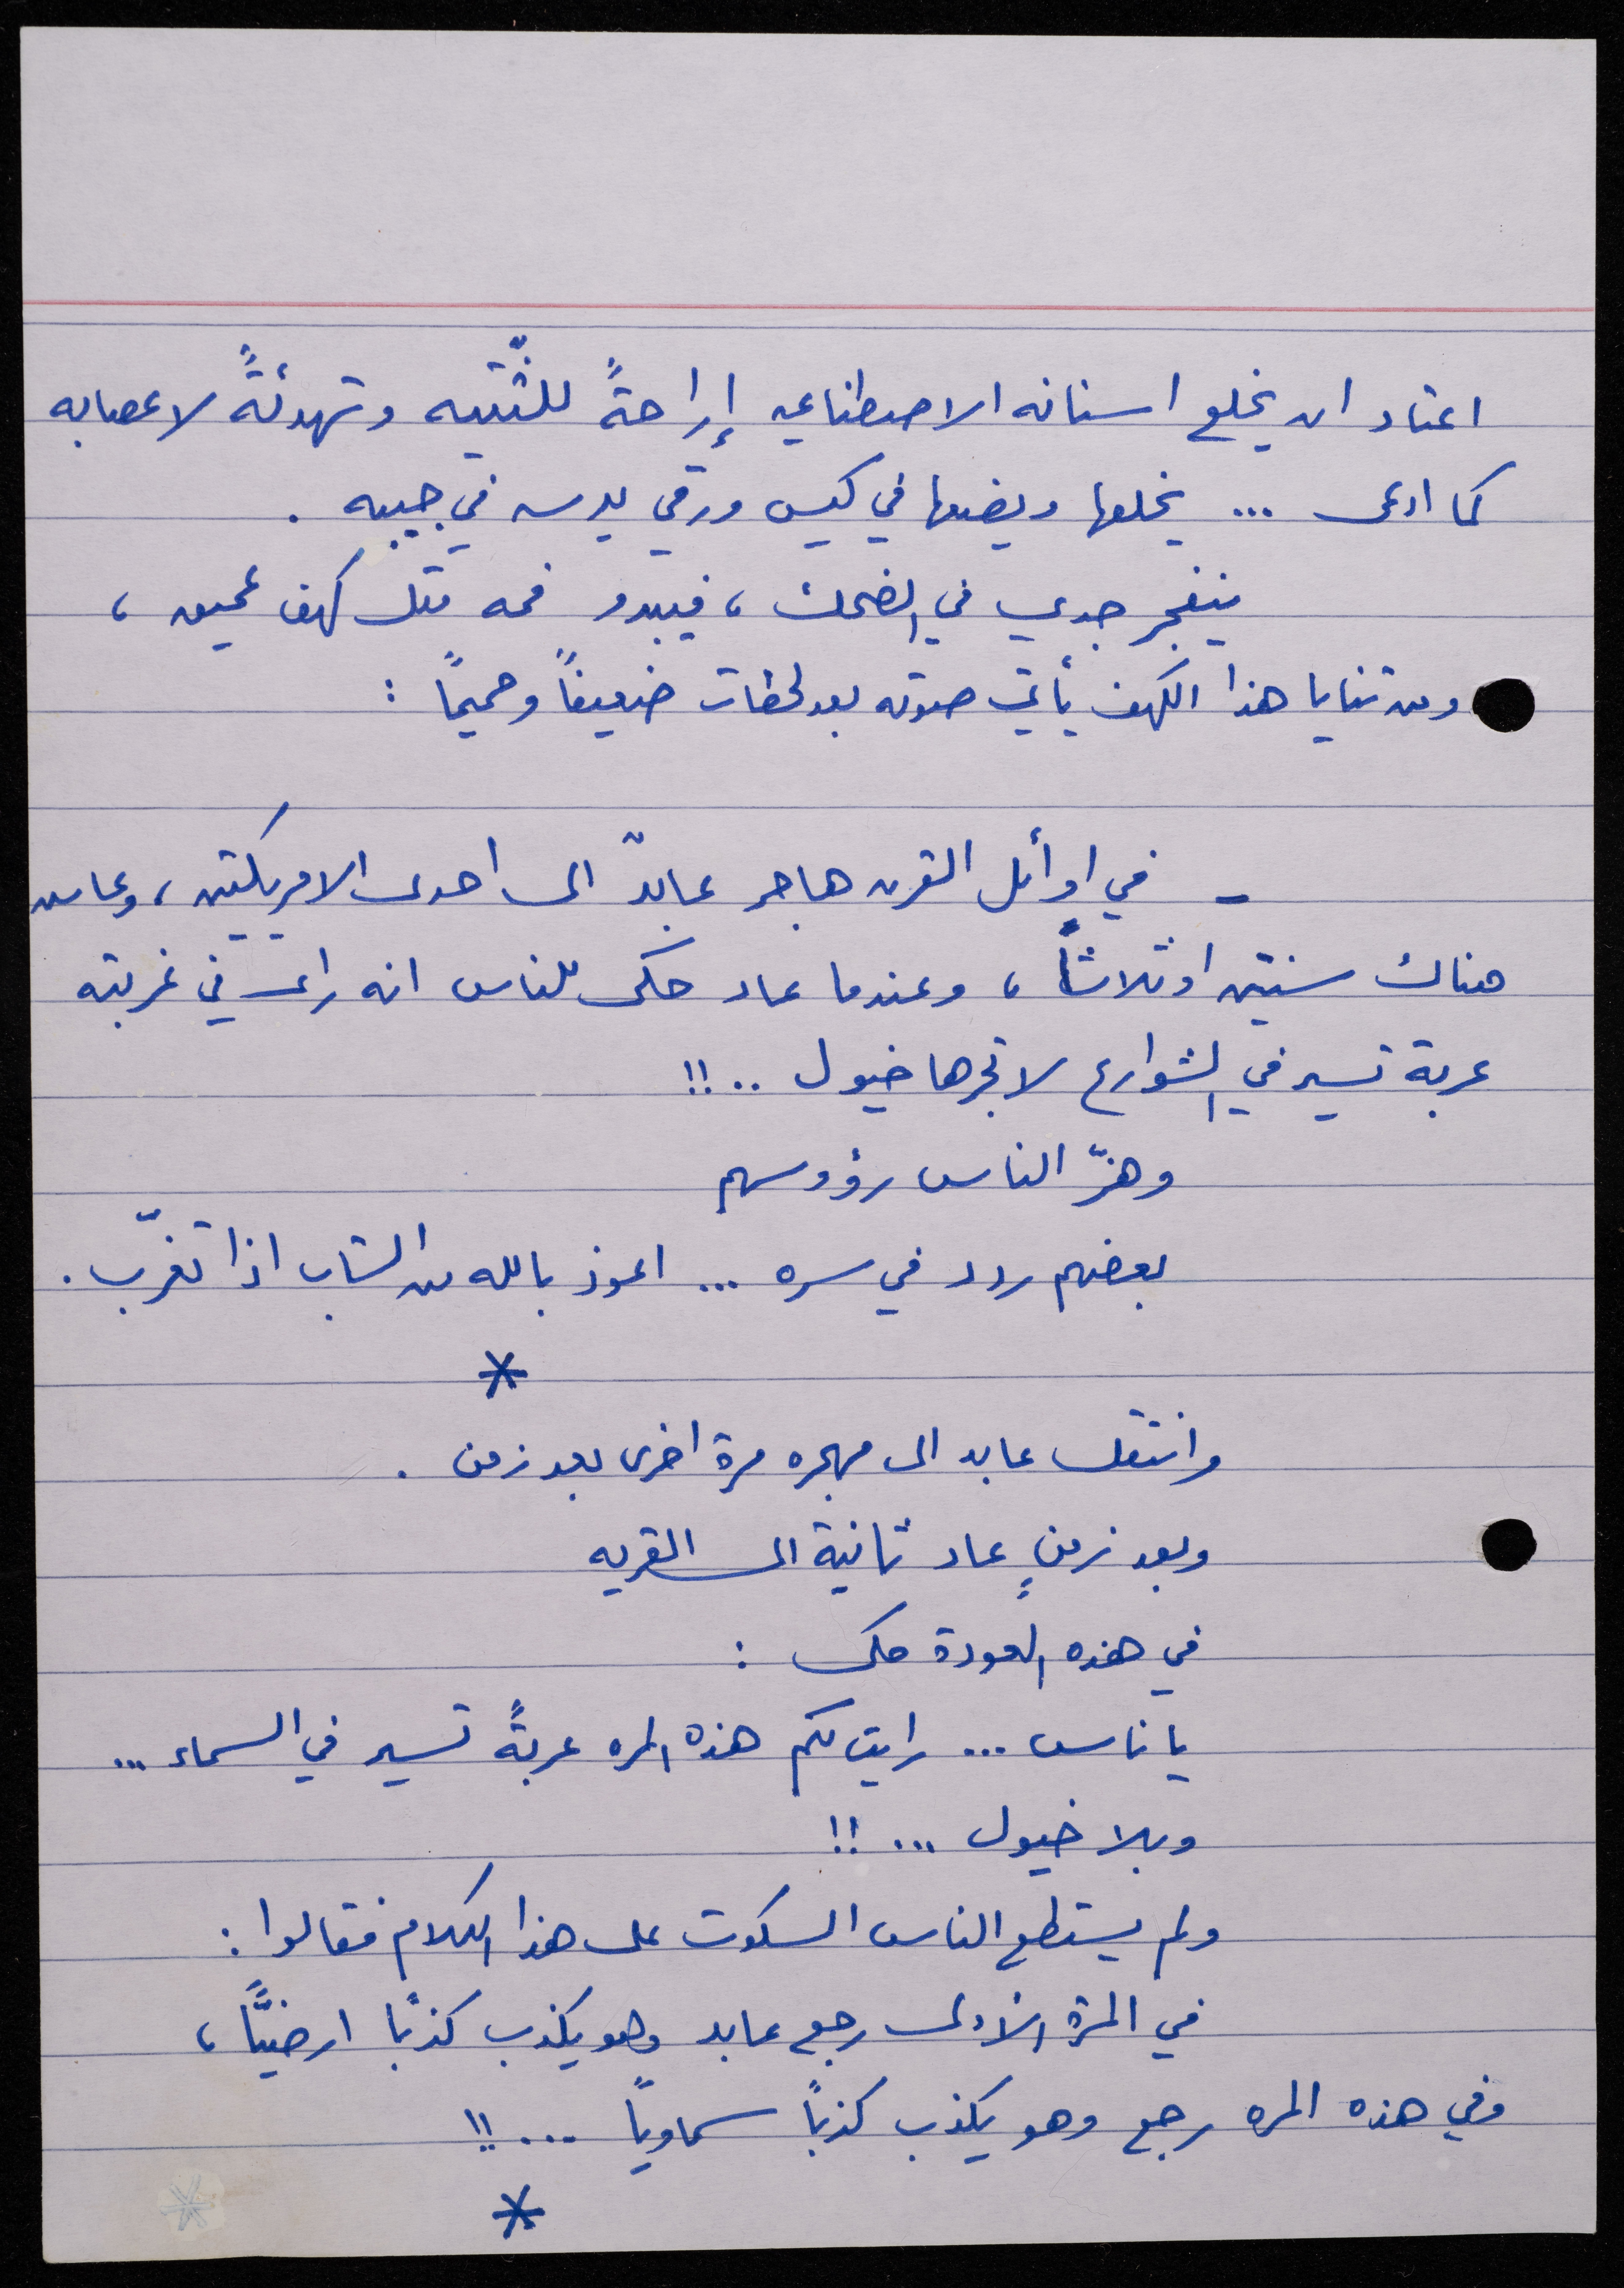 اعتاد ان يخلع اسنانه الاصطناعيه إراحةً للثّتيه وتهدئةً لاعصابه
كما ادعى ... يخلعها ويضعها في كيس ورقي يدسه في جيبه .
ينفجر جدي في الضحك ، فيبدو فمه مثل كهف عميق ،
ومن ثنايا هذا الكهف يأتي صوته بعد لحظات ضعيفاً وحميماً :
- في اوأئل القرن هاجر عابدّ الى احدى الامريكتين ، وعاش
هناك سنتين او ثلاثاً ، وعندما عاد حكى للناس انه راى في غربته
عربة تسير في الشوارع لا تجرها خيول ..!!
وهزّ الناس رؤوسهم
بعضهم ردد في سره ... اعوذ بالله من الشاب اذا تغرّب .
*
وانتقل عابد الى مهجره مرة اخرى بعد زمن .
وبعد زمنٍ عاد ثانية الى القريه
في هذه العودة حكى :
يا ناس ... رايت لكم هذه المره عربةً تسير في السماء ...
وبلا خيول ...!!
ولم يستطع الناس السكوت على هذا الكلام فقالوا :
في المرة الأولى رجع عابد وهو يكذب كذبًا ارضيًّا ،
وفي هذه المره رجع وهو يكذب كذباً سماوياً ...!!
*